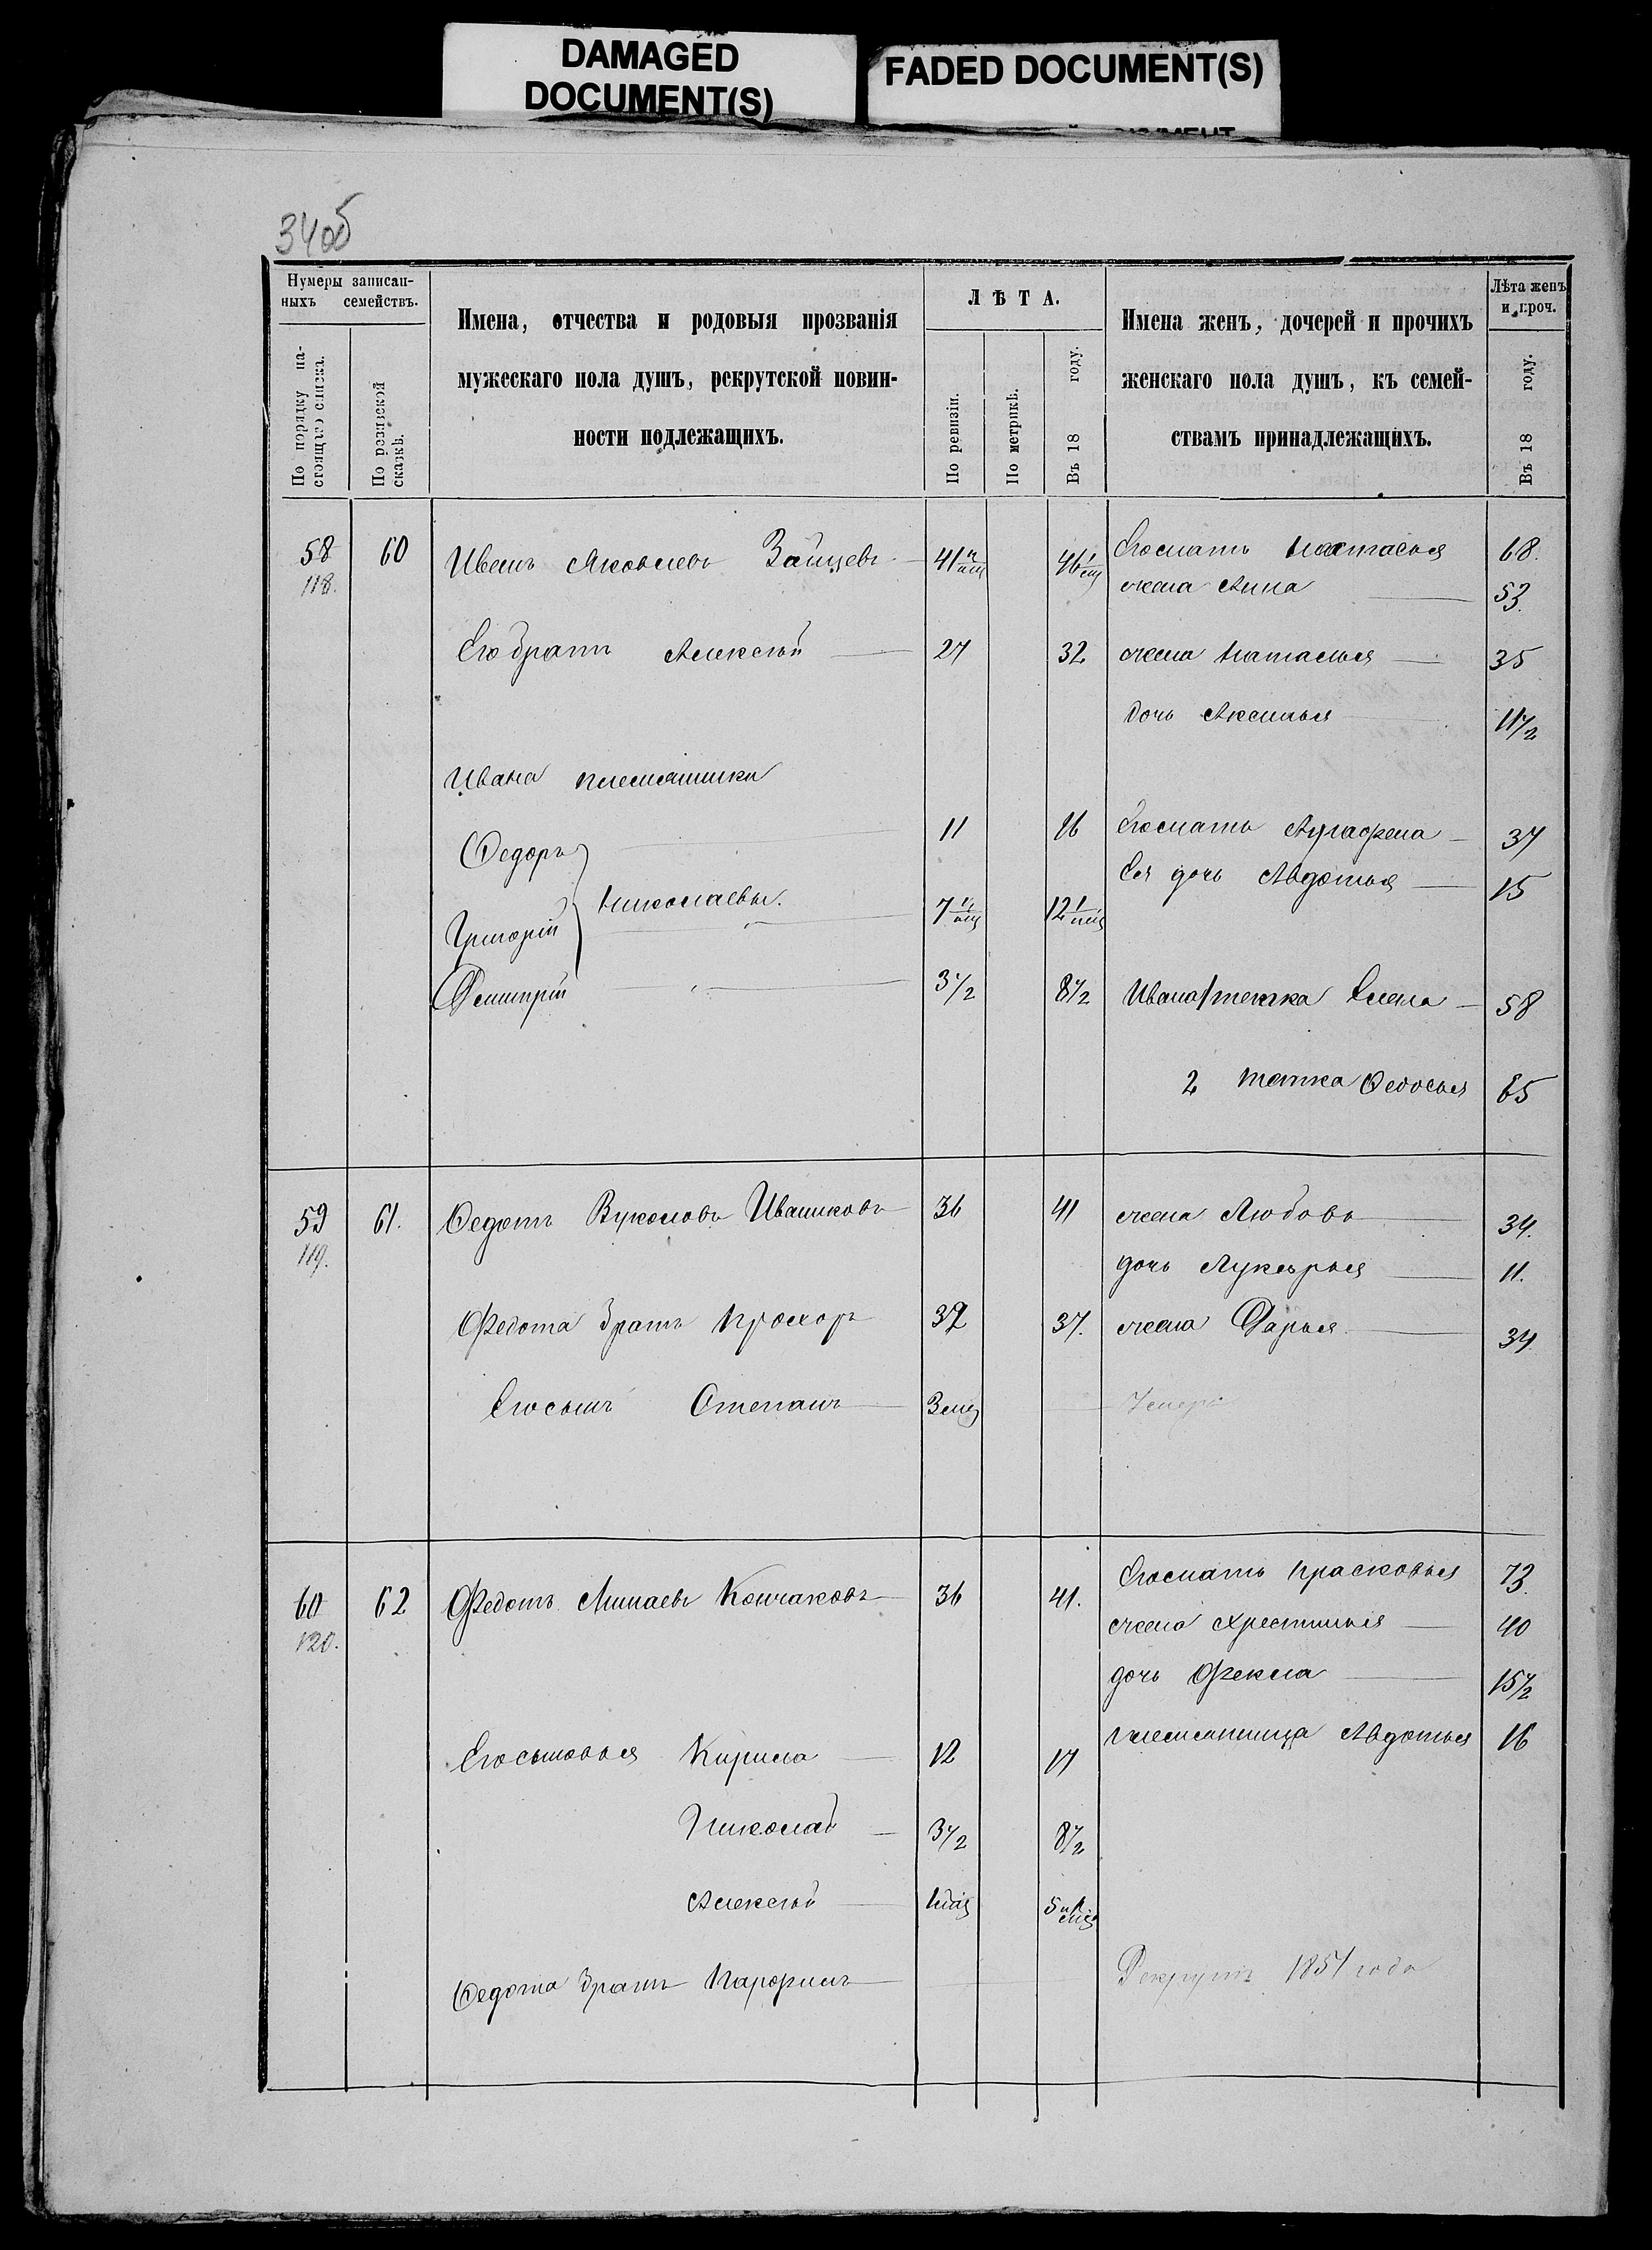 DAMAGED
DOCUMENT(S)
FADED DOCUMENT(S)
34об
Нумеры записан-
ныхъ семействъ.
По порядку на-
стоящаго списка.
По ревизской
сказкѣ.
Имена, отчества и родовыя прозванія
мужескаго пола душъ, рекрутской повин-
ности подлежащихъ.
ЛѢТА.
По ревизіи.
По метрикѣ.
Въ 18 году.
Имена женъ, дочерей и прочихъ
женскаго пола душъ, къ семей-
ствамъ принадлежащихъ.
Лѣта женъ
и проч.
Въ 18 году.
58 60 Иванъ Яковлевъ Зайцевъ 41 46 Его мать Настасья 68.
118. жена Анна 53.
Его братъ Алексѣй 27 32 жена Наталья 35
дочь Аксинья 11 1/2
Ивана племянники
Федоръ 11 16 Его мать Аграфена 37
Ея дочь Авдотья 15
Григорій Николаевы. 7 12
Дмитрій 3 1/2 8 1/2 Ивана 1 тетка Елена 58
2 тетка Федосья 65
59 61. Федотъ Вуколовъ Ивашковъ 36 41 жена Любовь 34.
119. дочь Лукерья 11.
Федота братъ Прохоръ 32 37. жена Дарья 34
Его сынъ Степанъ 3 мец Умеръ
60 62 Федотъ Минаевъ Кончаковъ 36 41. Его мать Прасковья 73.
120. жена Хрестинья 40
дочь Фекла 15 1/2
племянница Авдотья 16
Его сыновья Кирила 12 17
Николай 3 1/2 8 1/2
Алексѣй 5
Федота братъ Парфилъ Рекрутъ 1854 года